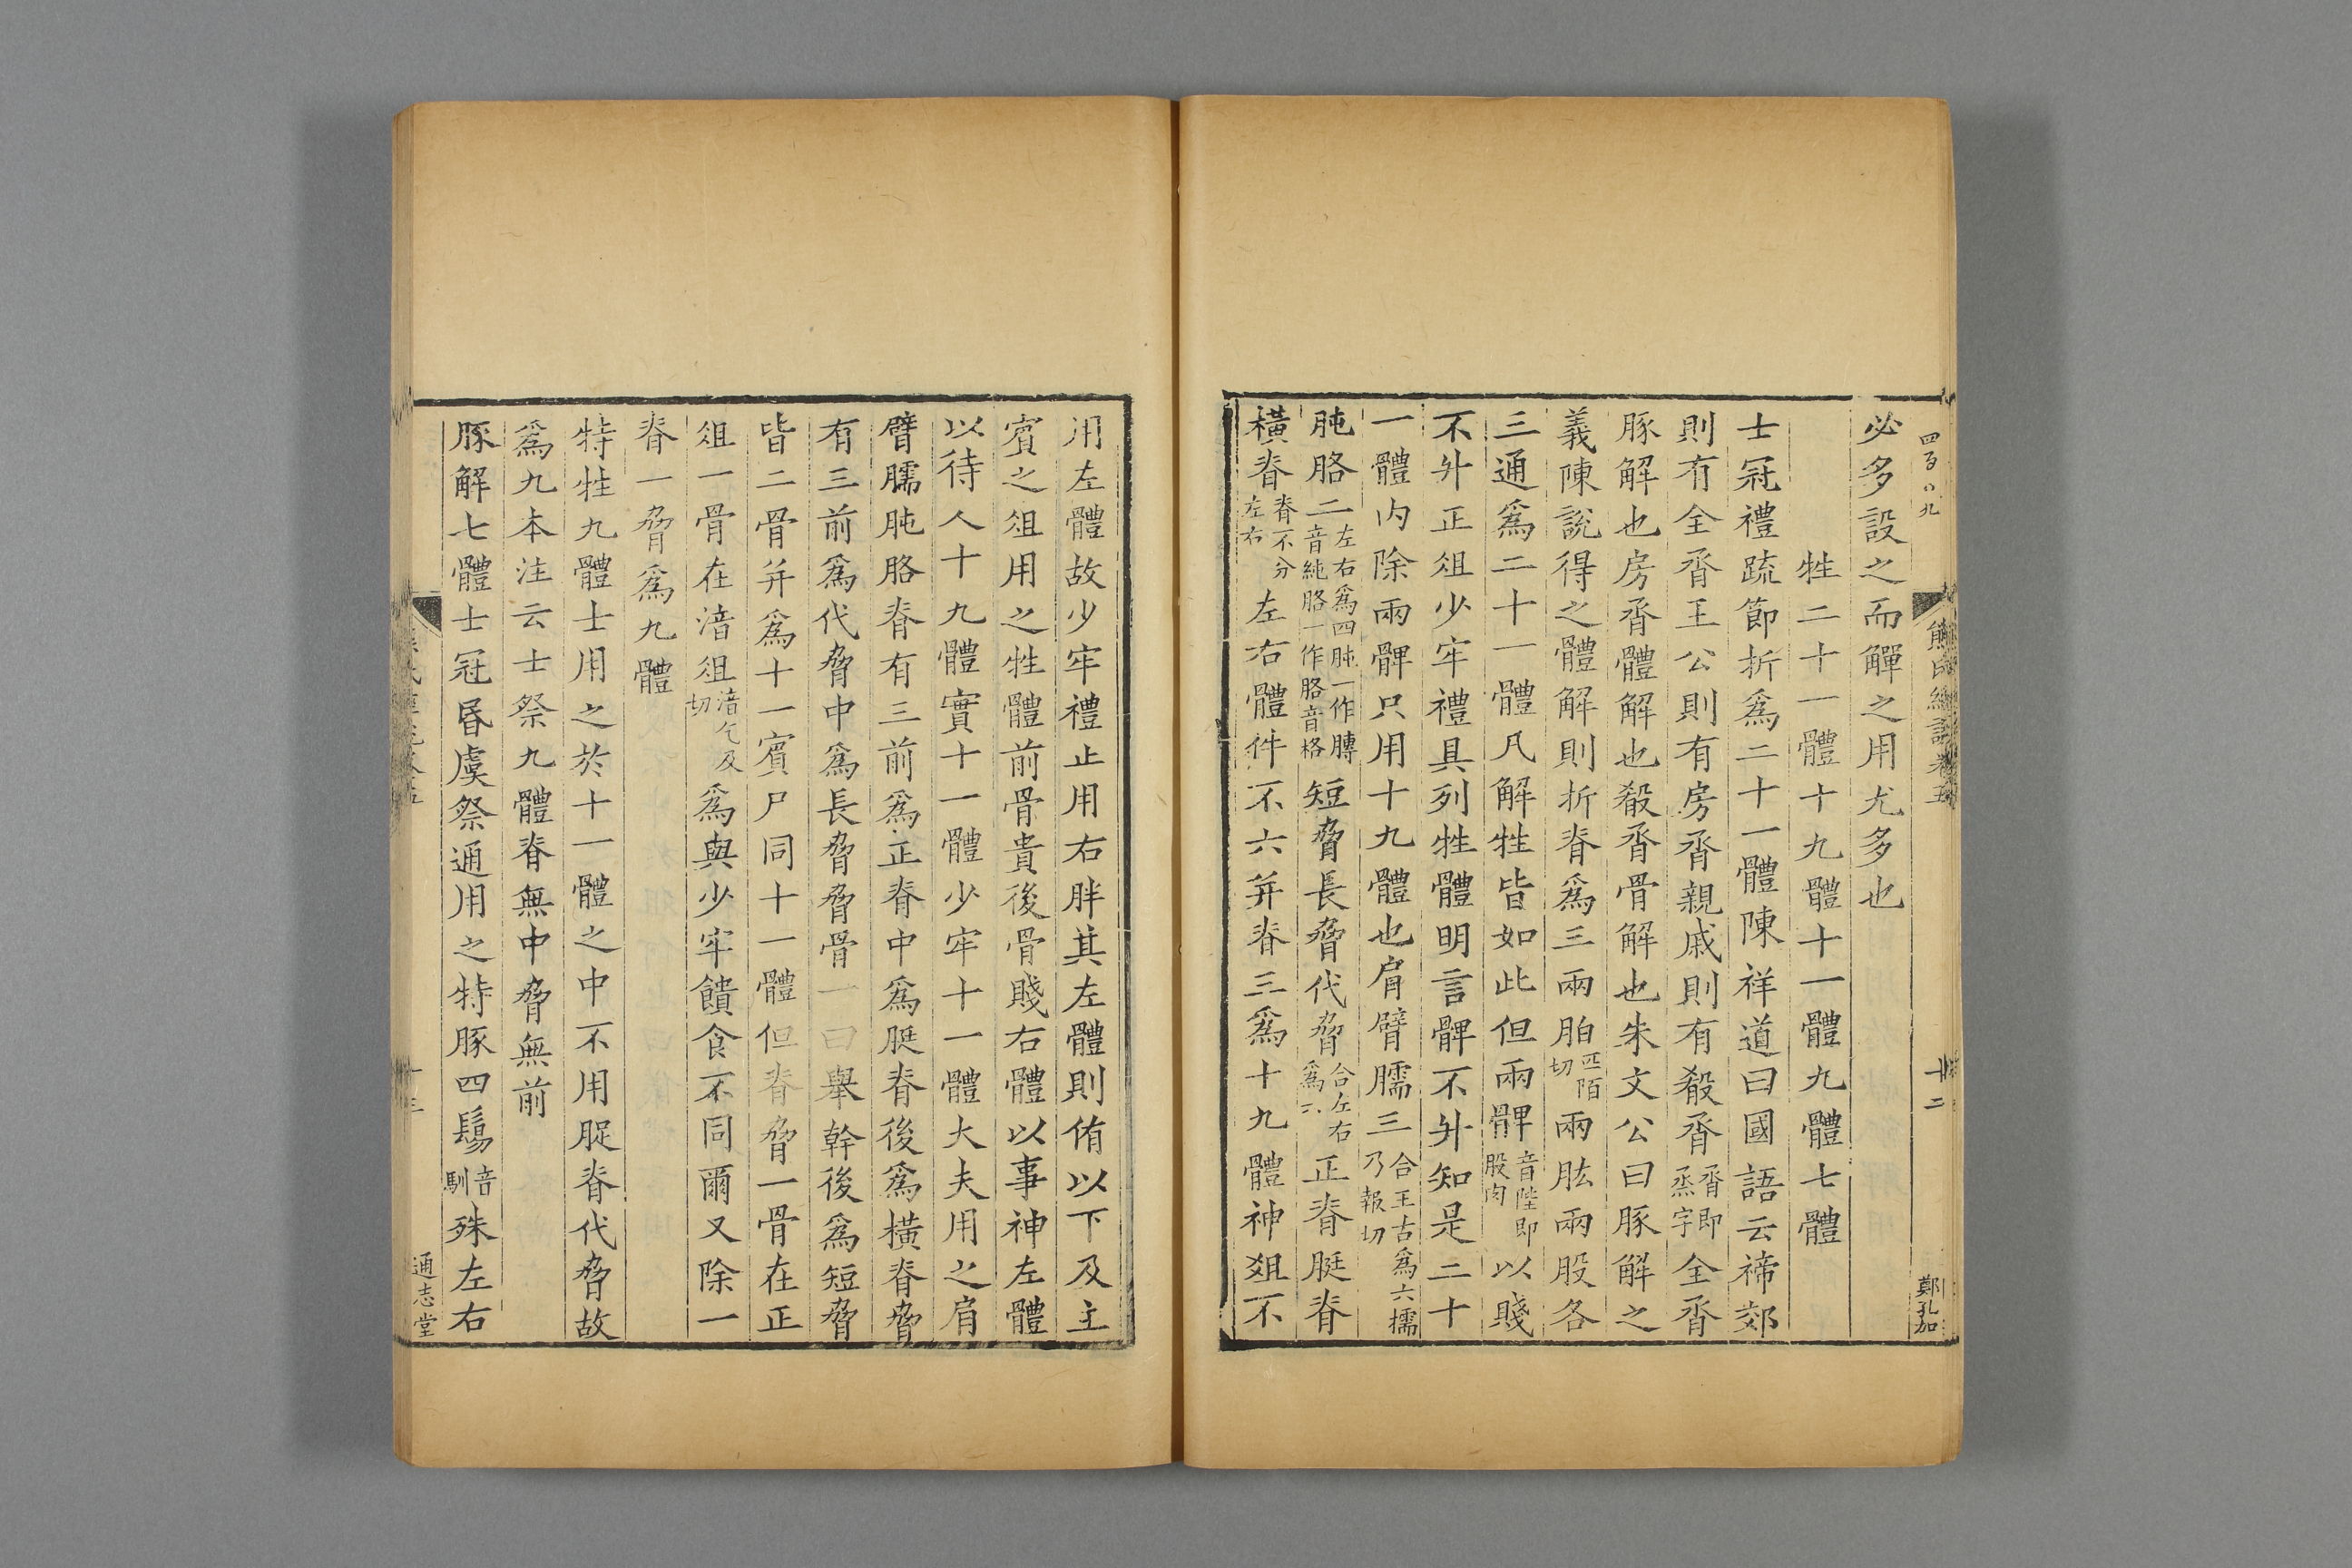 四百八九
熊氏經說卷五
十二
鄭孔加
必多設之而觶之用尤多也
牲二十一體十九體十一體九體七體
士冠禮疏節折爲二十一體陳祥道曰國語云禘郊
則有全胥王公則有房胥親戚則有殽胥胥即烝字全胥
豚解也房胥體解也殽胥骨解也朱文公曰豚解之
義陳說得之體解則折脊爲三兩胉匹陌切兩肱兩股各
三通爲二十一體凡解牲皆如此但兩髀音陛即股肉以賤
不升正俎少牢禮具列牲體明言髀不升知是二十
一體內除兩髀只用十九體也肩臂臑三合王古爲六擩乃報切
肫胳二左右爲四肫一作膞音純胳一作胳音格短脅長脅代脅合左右爲六正脊脡脊
橫脊脊不分左右左右體件不六并脊三爲十九體神俎不
用左體故少牢禮止用右胖其左體則侑以下及主
賓之俎用之牲體前骨貴後骨賤右體以事神左體
以待人十九體實十一體少牢十一體大夫用之肩
臂臑肫胳脊有三前爲正脊中爲脡脊後爲橫脊脅
有三前爲代脅中爲長脅脅骨一曰舉幹後爲短脅
皆二骨并爲十一賓尸同十一體但脊脅一骨在正
俎一骨在湆俎湆乞及切爲與少牢饋食不同爾又除一
脊一脅爲九體
特牲九體士用之於十一體之中不用脡脊代脅故
爲九本注云士祭九體脊無中脅無前
豚解七體士冠昏虞祭通用之特豚四鬄音馴殊左右
通志堂